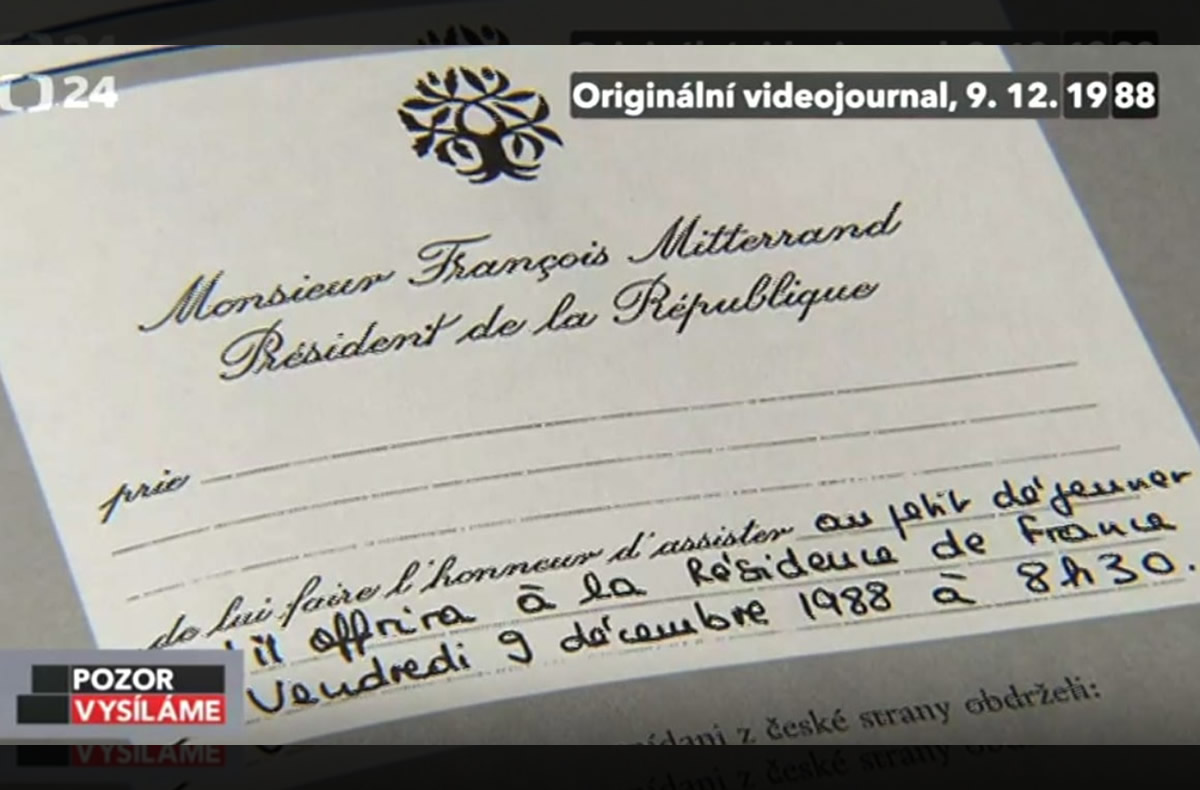 24
Originální videojournal, 9. 12. 1988
Monsieur François Mitterrand
Président de la République
prie
de lui faire l'honneur d'assister au petit déjeuner
il offrira à la Résidence de France
Vendredi 9 décembre 1988 à 8h30.
z české strany obdrželi:
POZOR
VYSÍLÁME